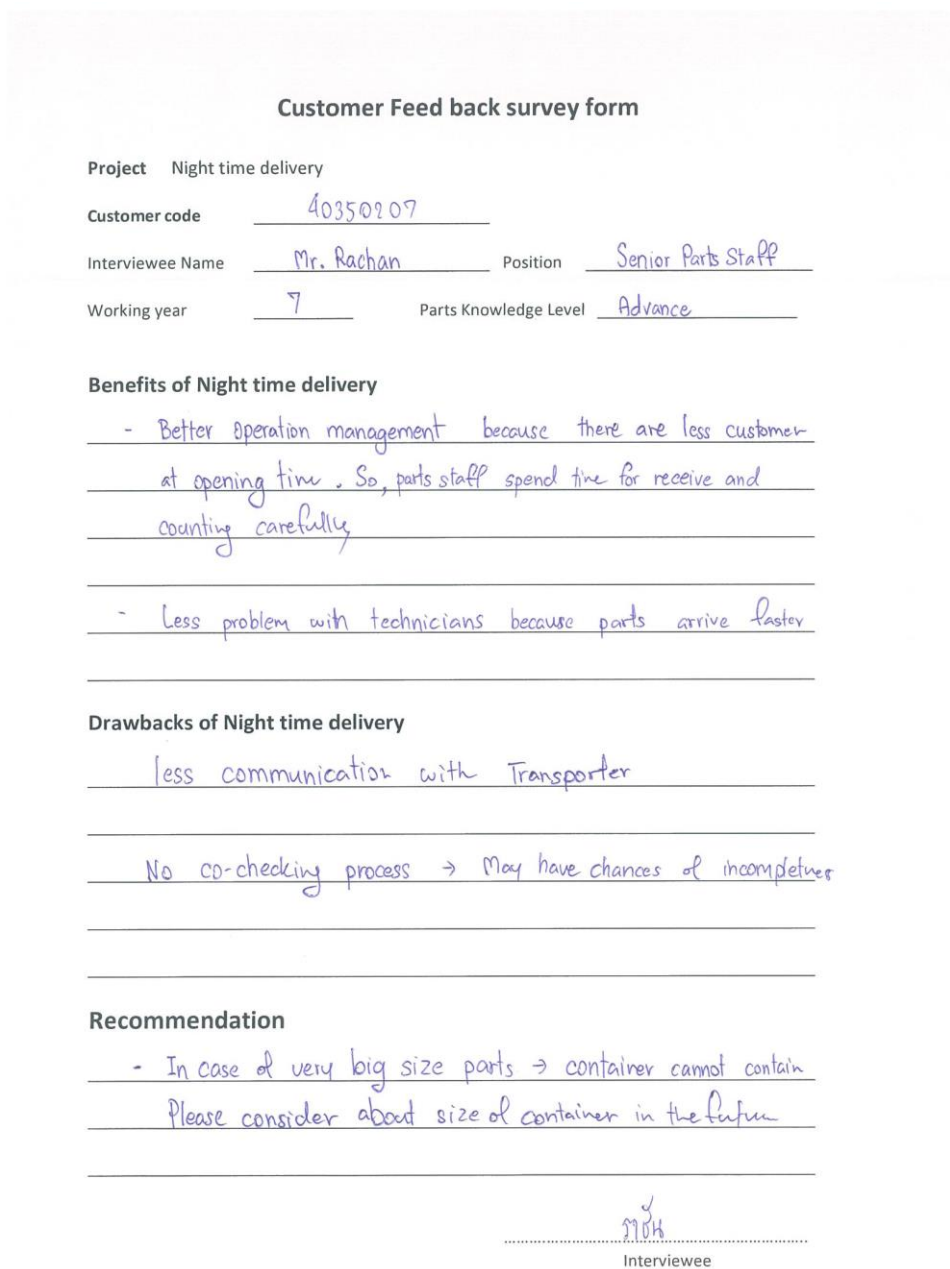 Customer Feed back survey form
Project Night time delivery
Customer code 40350207
Interviewee Name Mr. Rachan Position Senior Parts Staff
Working year 7 Parts Knowledge Level Advance
Benefits of Night time delivery
- Better Operation management because there are less customer
at opening time. So, parts staff spend time for receive and
counting carefully
- Less problem with technicians because parts arrive faster
Drawbacks of Night time delivery
less communication with Transporter
No co-checking process → May have chances of
Recommendation
- In case of very big size parts → container cannot contain
Please consider about size of container in the future
Interviewee